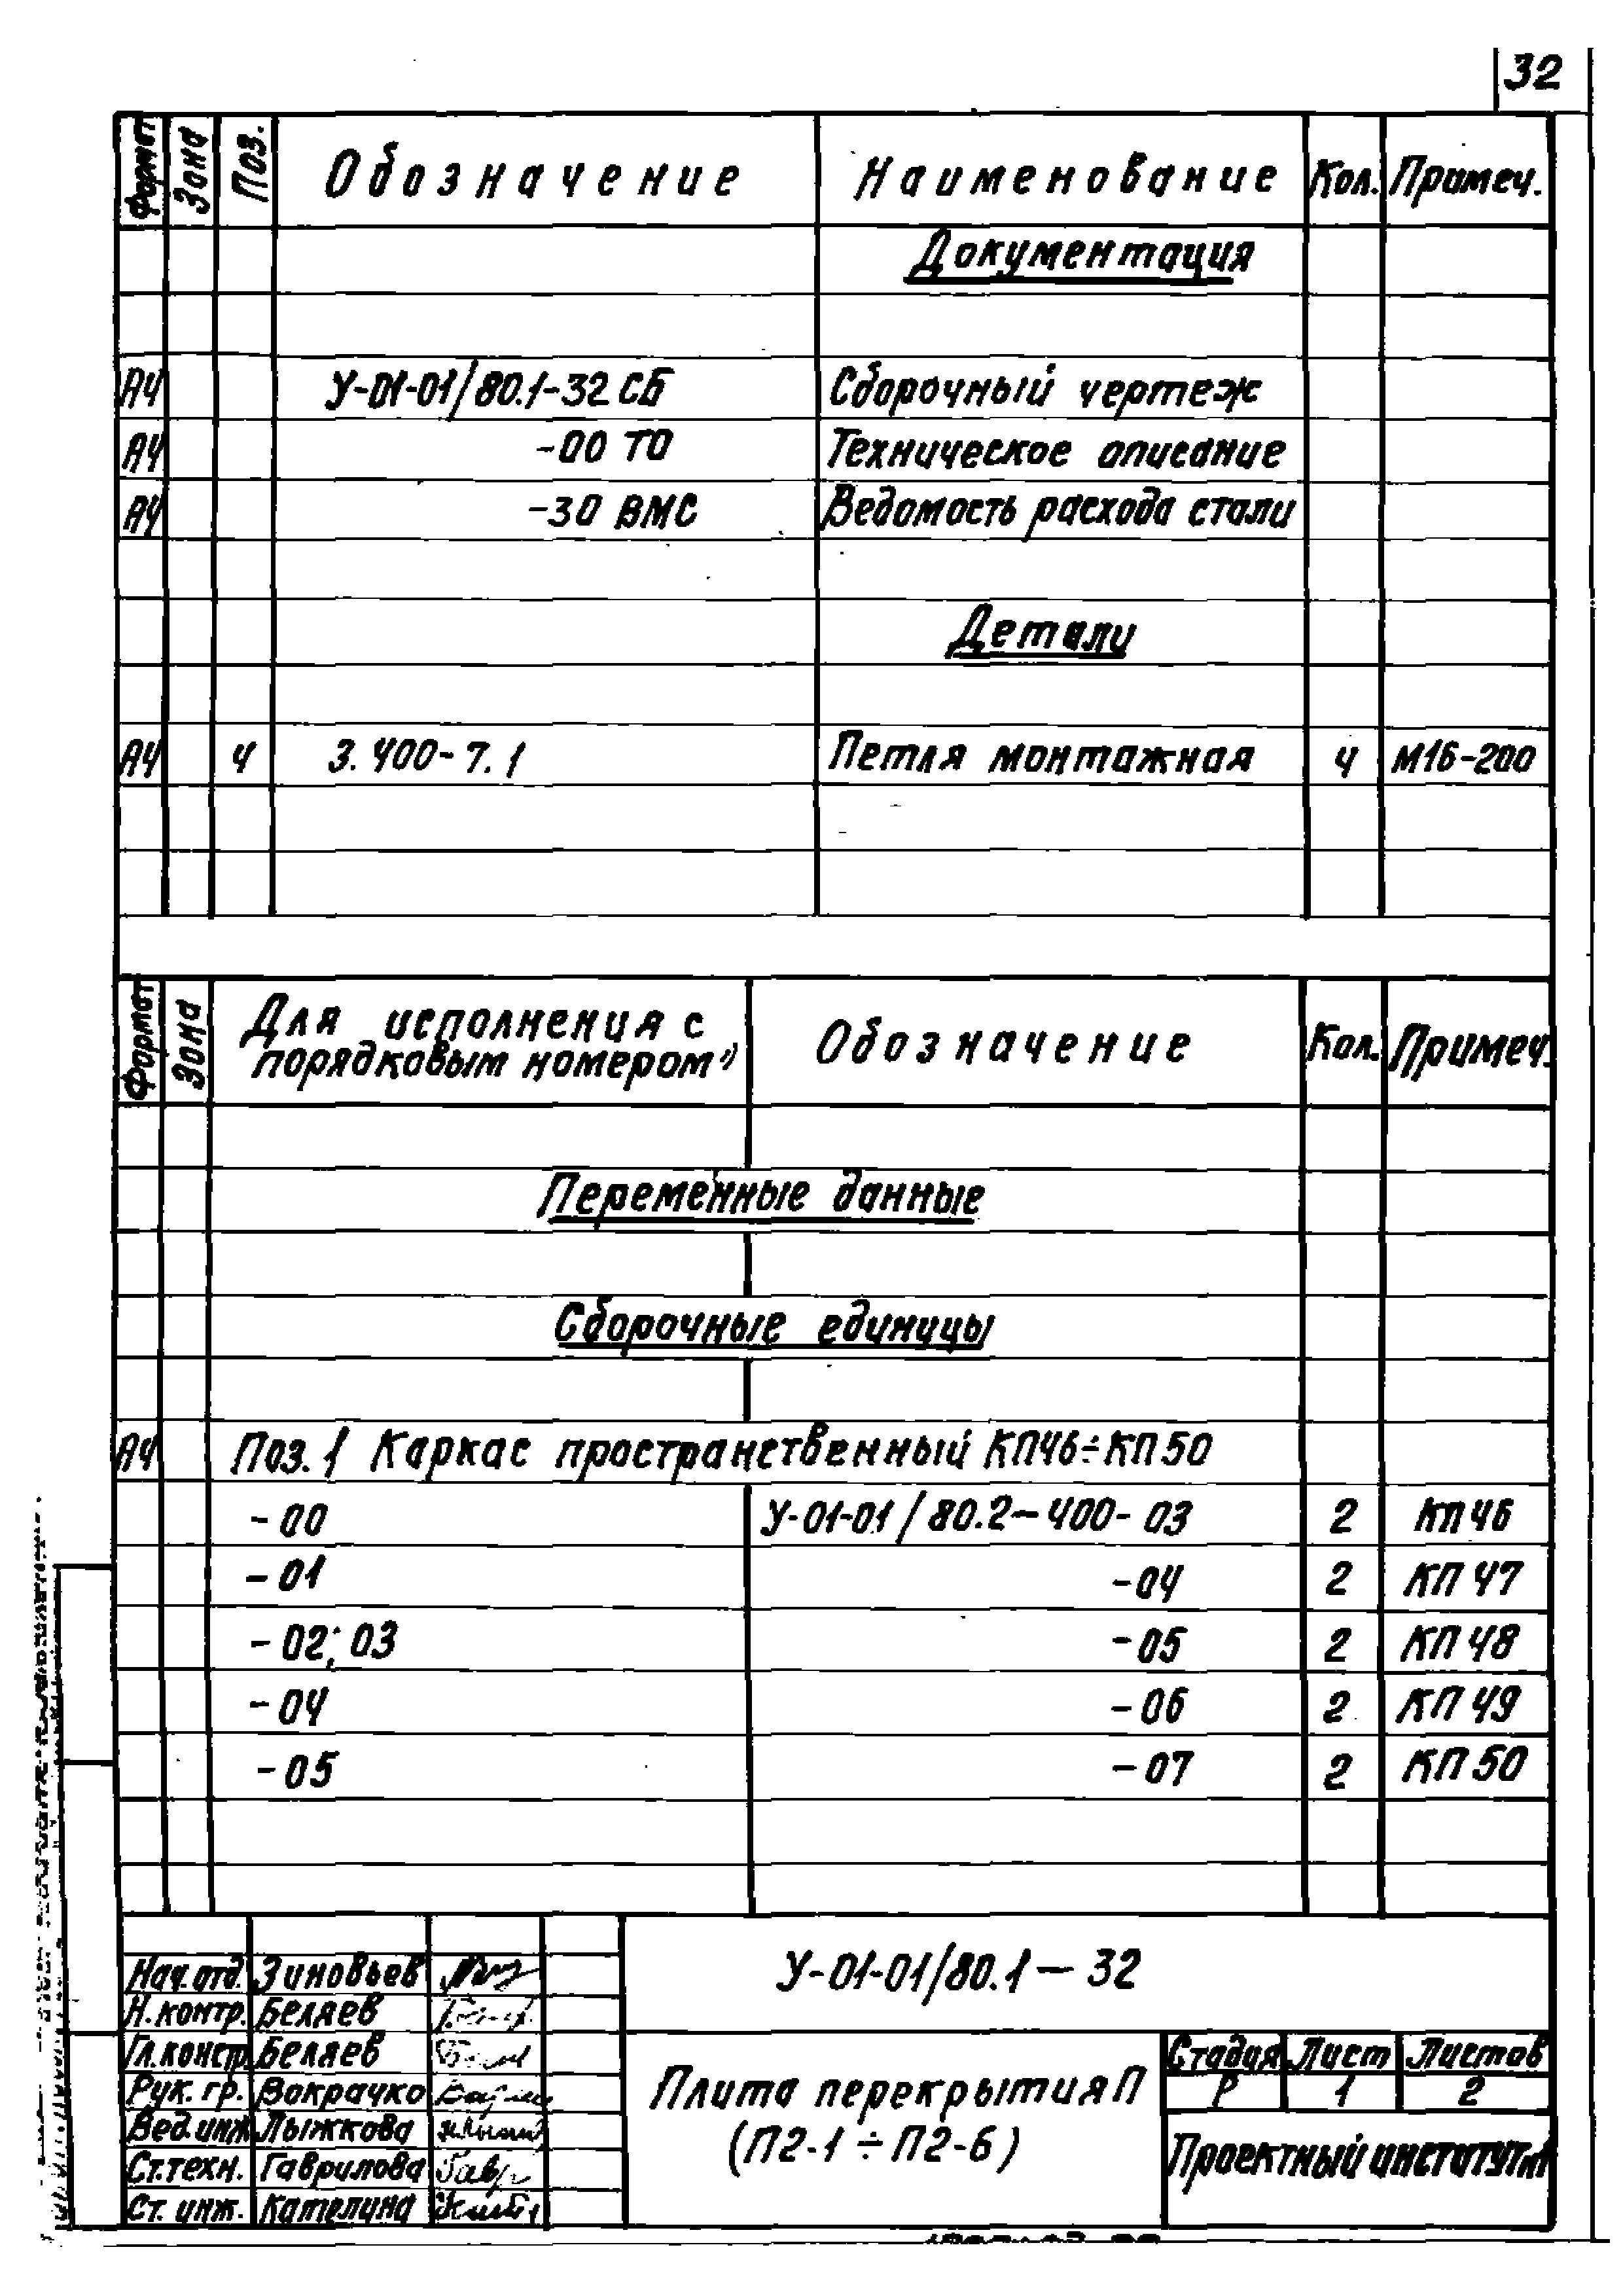 32
Формат Зона Поз. Обозначение Наименование Кол. Примеч.
Документация
А4 У-01-01/80.1-32 СБ Сборочный чертеж
А4 -00 ТО Техническое описание
А4 -30 ВМС Ведомость расхода стали
Детали
А4 4 3.400-7.1 Петля монтажная 4 М16-200
Формат Зона Для исполнения с порядковым номером Обозначение Кол. Примеч.
Переменные данные
Сборочные единицы
А4 Поз. 1 Каркас пространственный КП46÷КП50
-00 У-01-01/80.2-400-03 2 КП46
-01 -04 2 КП 47
-02; 03 -05 2 КП 48
-04 -06 2 КП 49
-05 -07 2 КП 50
У-01-01/80.1-32
Нач. отд. Зиновьев
Н. контр. Беляев
Гл. констр. Беляев
Рук. гр. Вокрачко
Вед. инж. Лыжкова
Ст. техн. Гаврилова
Ст. инж. Кателина
Плита перекрытия П
(П2-1 ÷ П2-6)
Стадия Лист Листов
Р 1 2
Проектный институт №1